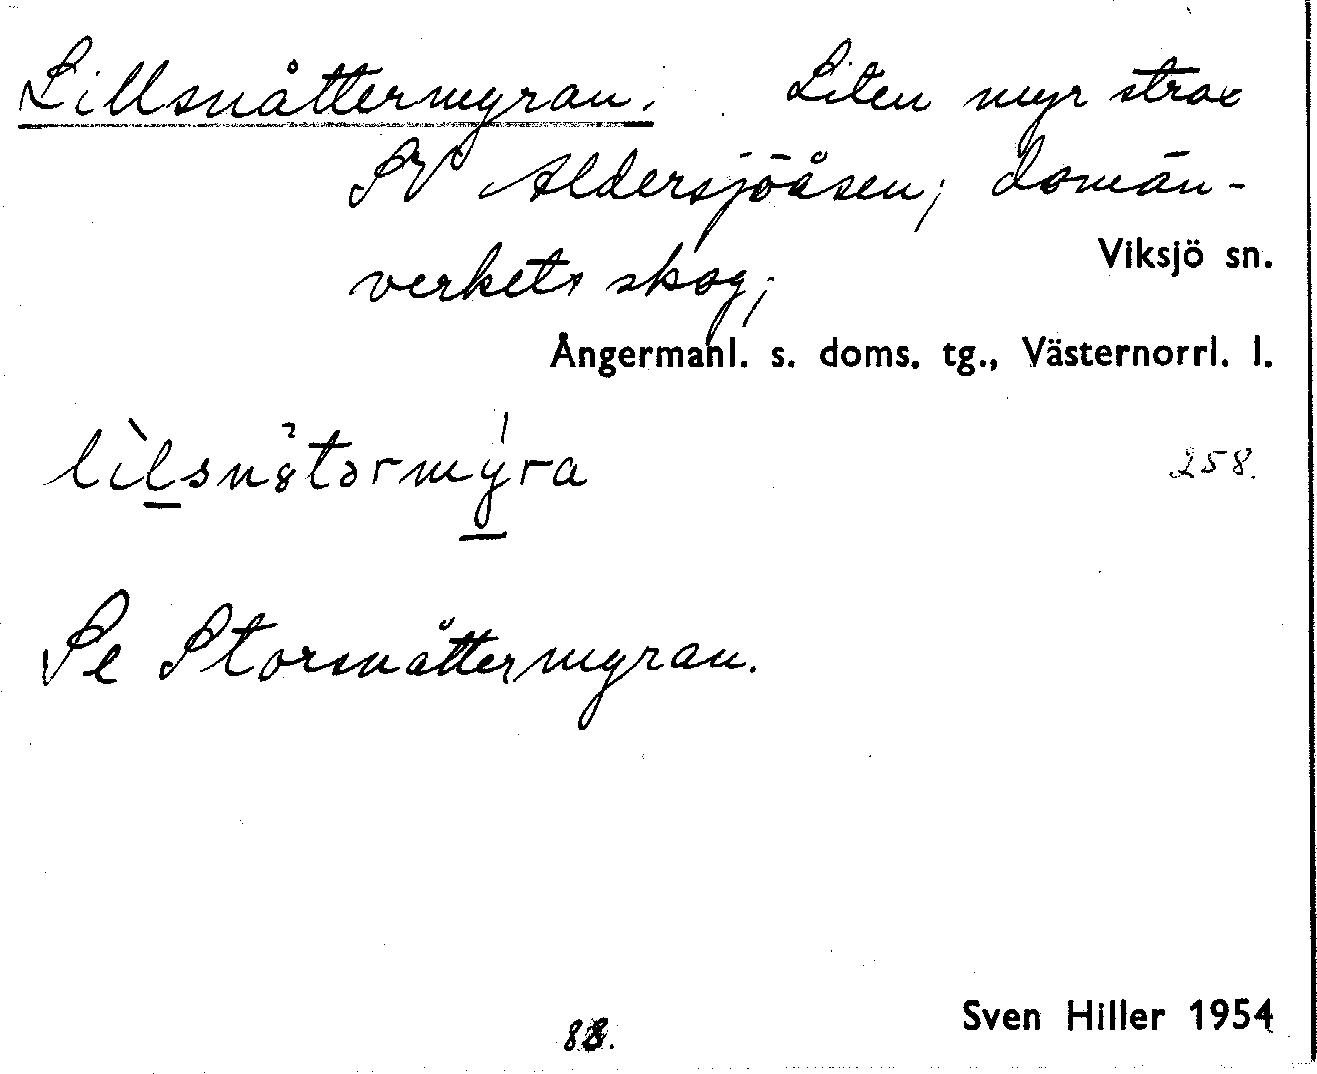 Lillsnåttermyran. Liten myr strax
SV Aldersjöåsen; domän-
verkets skog;
Viksjö sn.
Ångermanl. s. doms. tg., Västernorrl. l.
lìlsnåtərmýra
258.
Se Storsnåttermyran.
Sven Hiller 1954